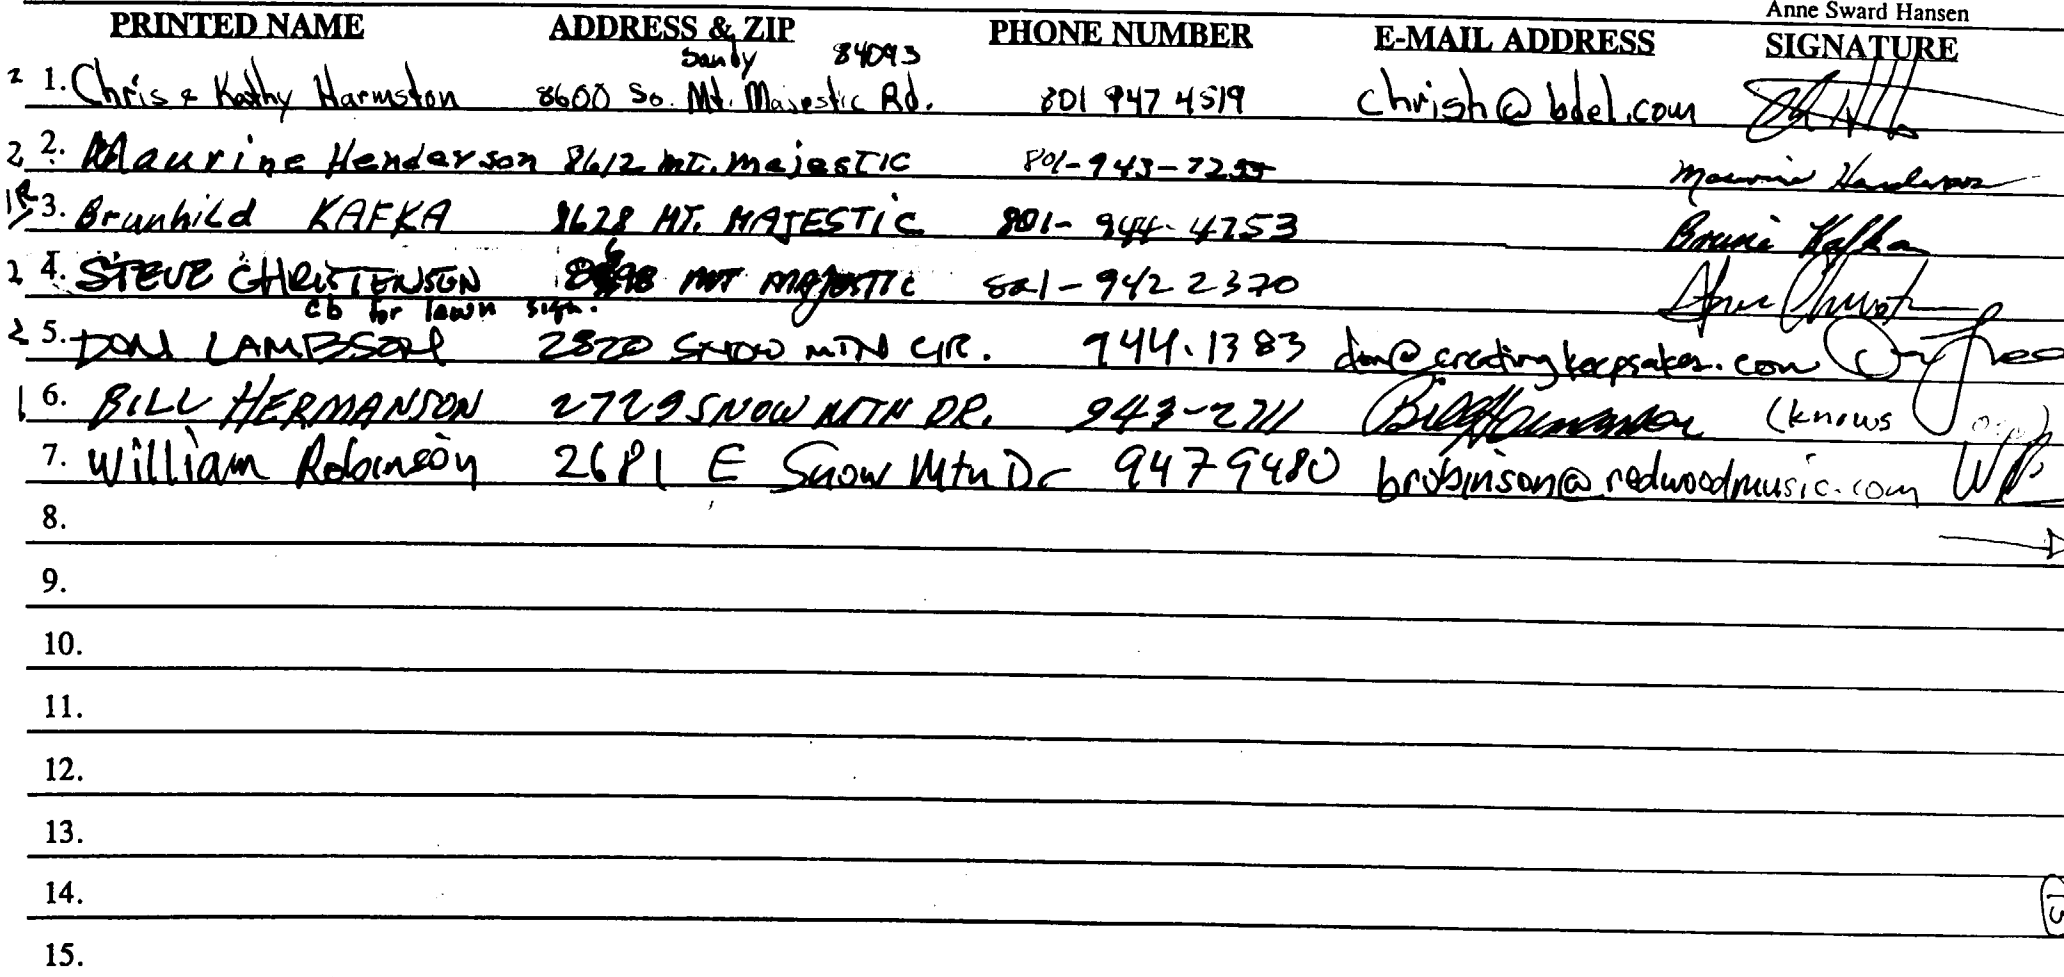 Anne Sward Hansen
PRINTED NAME ADDRESS & ZIP PHONE NUMBER E-MAIL ADDRESS SIGNATURE
Sandy 84093
2 1. Chris & Kathy Harmston 8600 So. Mt. Majestic Rd. 801 947 4519 chrish@bdel.com
2 2. Maurine Henderson 8612 MT. Majestic 801-943-7255 Maurine Henderson
1R 3. Brunhild KAFKA 8628 MT. MAJESTIC 801-944-4253 Bruni Kafka
2 4. STEVE CHRISTENSEN MT MAJESTIC 801-942 2370
cb for lawn sign.
2 5. DON LAMBSON 2820 SNOW MTN CIR. 944.1383 don@creatingkeepsakes.com
1 6. BILL HERMANSON 2729 SNOW MTN DR. 943-2711 Bill Hermanson (knows
7. William Robinson 2681 E Snow Mtn Dr 947 9480 brobinson@redwoodmusic.com
8.
9.
10.
11.
12.
13.
14.
15.